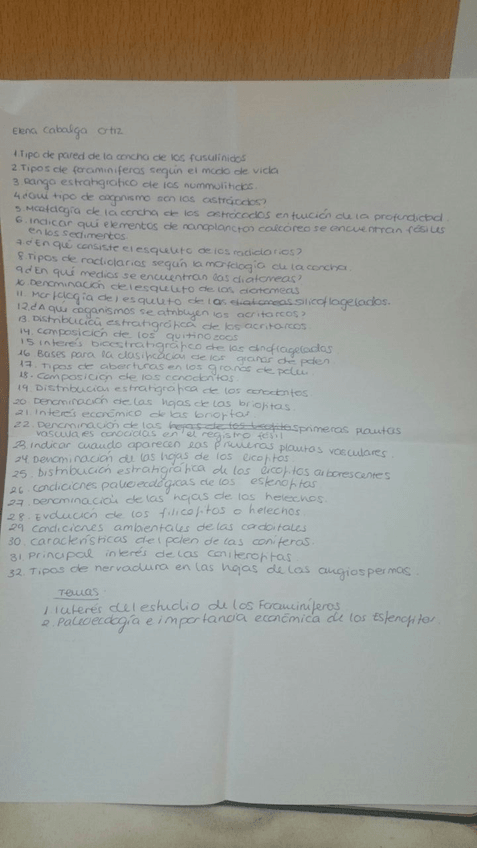 Elena Cabaliga Ortiz
1. Tipo de pared de la concha de los fusulínidos
2. Tipos de foraminíferos según el modo de vida
3. Rango estratigráfico de los nummulitidos.
4. ¿Qué tipo de organismo son los ostrácodos?
5. Morfología de la concha de los ostrácodos en función de la profundidad
6. Indicar qué elementos de nanoplancton calcáreo se encuentran fósiles
en los sedimentos.
7. ¿En qué consiste el esqueleto de los radiolarios?
8. Tipos de radiolarios según la morfología de la concha
9. ¿En qué medios se encuentran las diatomeas?
10. Denominación del esqueleto de las diatomeas
11. Morfología del esqueleto de los diatomeas silicoflagelados.
12. ¿A qué organismos se atribuyen los acritarcos?
13. Distribución estratigráfica de los acritarcos.
14. Composición de los quitinozoos
15. Interés bioestratigráfico de los dinoflagelados
16. Bases para la clasificación de los granos de polen.
17. Tipos de aberturas en los granos de polen.
18. Composición de los conodontos
19. Distribución estratigráfica de los conodontos
20. Denominación de las hojas de las briofitas.
21. Interés económico de las briofitas.
22. Denominación de las hojas de los primeras plantas
vasculares conocidas en el registro fósil
23. Indicar cuando aparecen las primeras plantas vasculares.
24. Denominación de las hojas de los licofitos.
25. Distribución estratigráfica de los licofitos arborescentes
26. Condiciones paleoecológicas de los esfenofitas.
27. Denominación de las hojas de los helechos.
28. Evolución de los filicofitos o helechos.
29. Condiciones ambientales de las cordaitales
30. Características del polen de las coníferas.
31. Principal interés de las coniferofitas
32. Tipos de nervadura en las hojas de las angiospermas.
Temas:
1. Interés del estudio de los Foraminíferos
2. Paleoecología e importancia económica de los Esfenofitos.